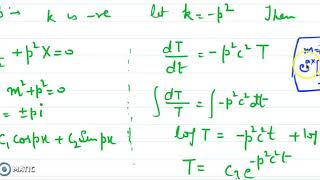 k is -ve let k = -p² Then
+ p²X = 0
m² + p² = 0
= ± pi
C₁ cos px + C₂ Sin px
dT/dt = -p²c² T
∫ dT/T = ∫ -p²c² dt
log T = -p²c²t + log
T = C₃ e^(-p²c²t)
MATIC